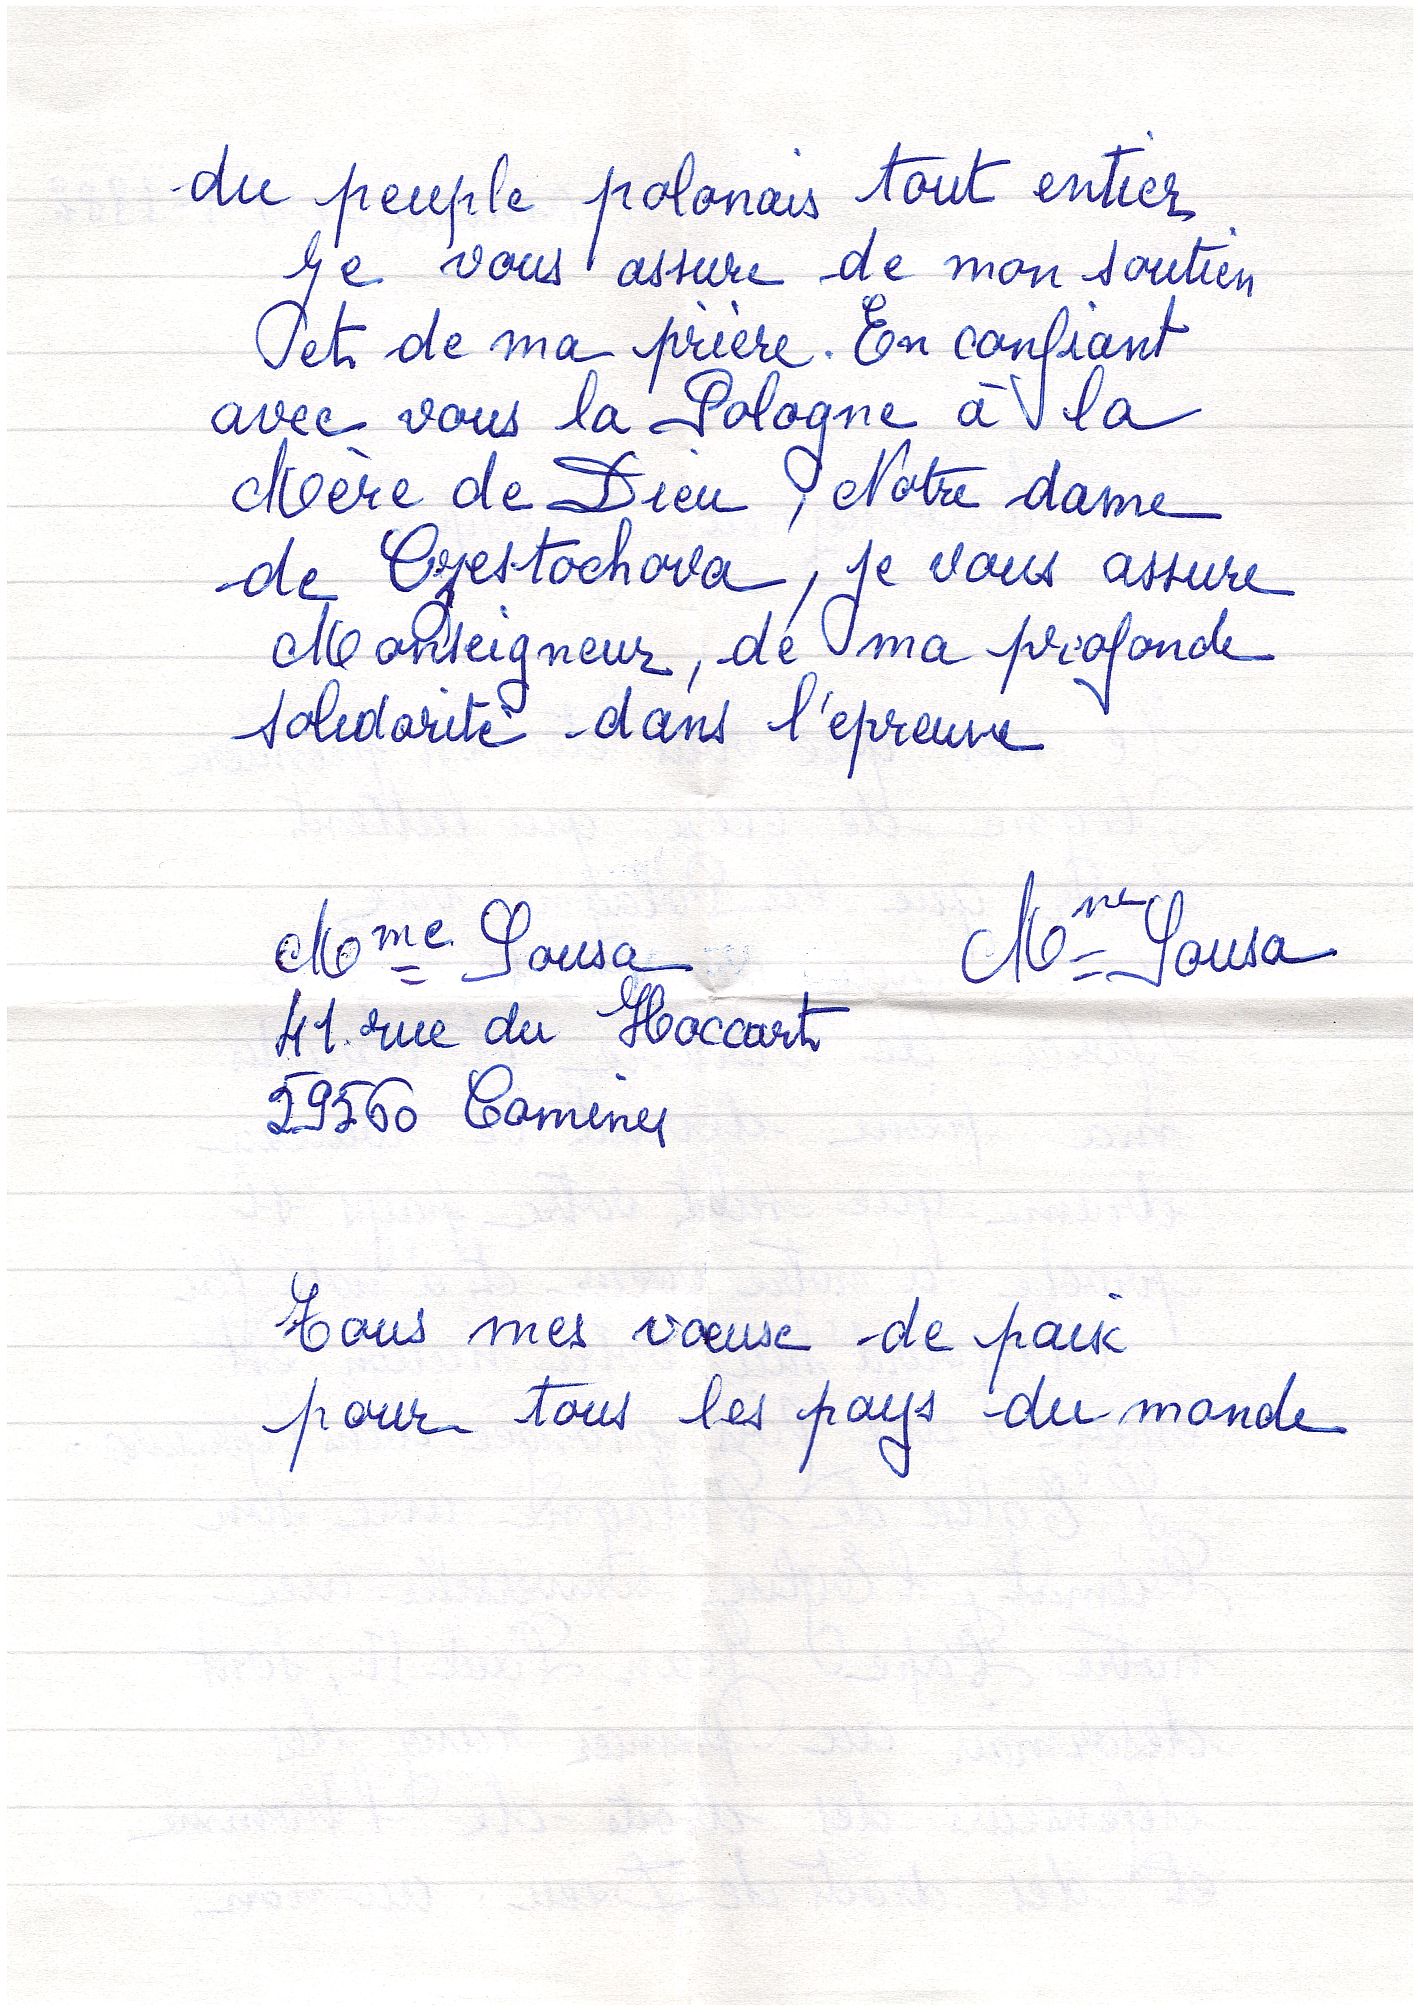 du peuple polonais tout entier
Je vous assure de mon soutien
et de ma prière. En confiant
avec vous la Pologne à la
Mère de Dieu, Notre dame
de Czestochova, je vous assure
Monseigneur, de ma profonde
solidarité dans l'épreuve
Mme Sousa
Mme Sousa
41 rue du Hoccart
59560 Comines
Tous mes voeux de paix
pour tous les pays du monde